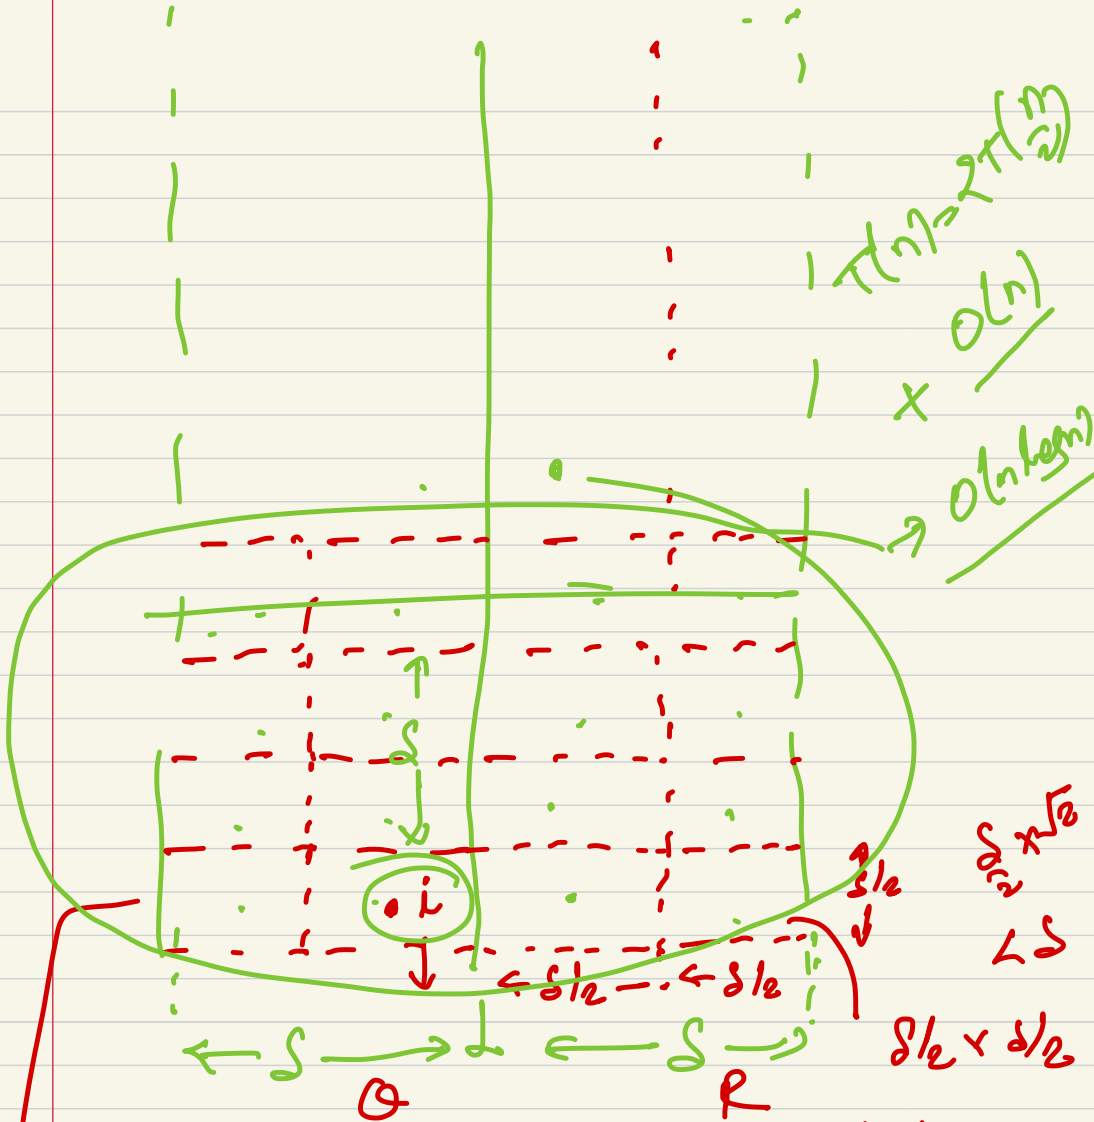 T(n) = 2T(n/2)
O(n)
×
O(n log n)
δ
i
δ/2
δ/2
δ/2
δ/2 × √2
< δ
δ/2 × δ/2
δ
δ
Q
R